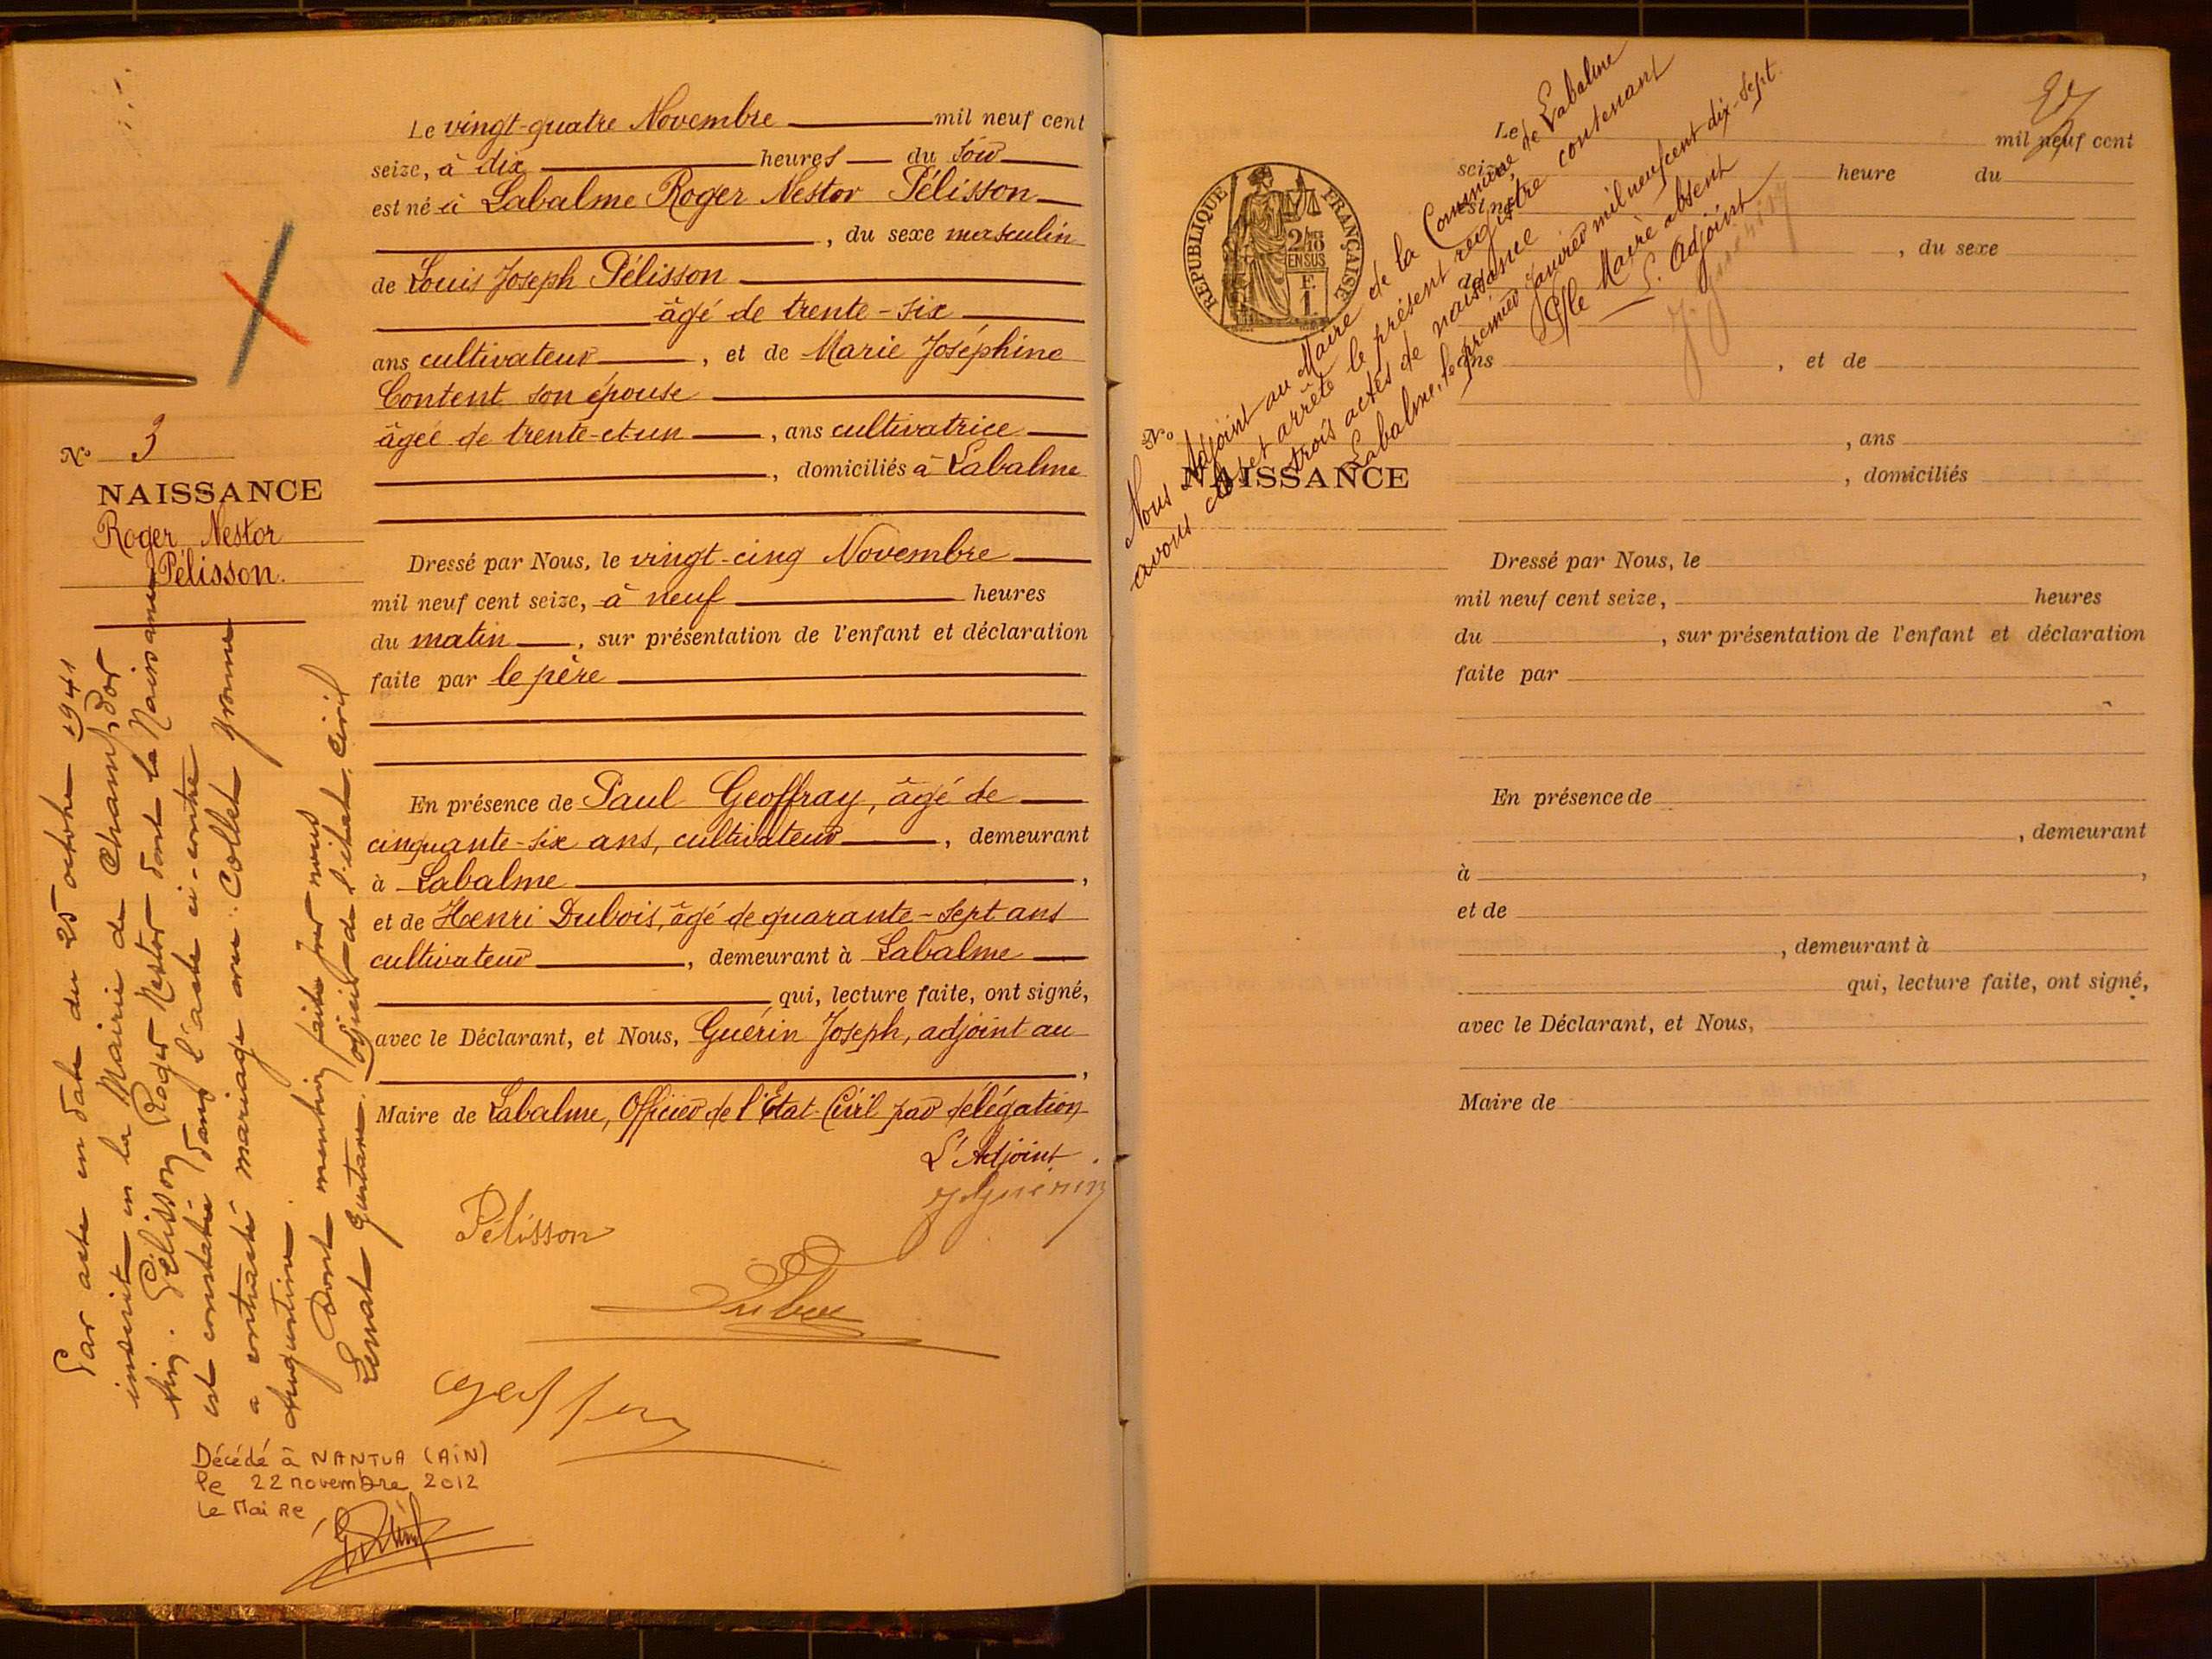 Le vingt-quatre Novembre mil neuf cent
seize, à dix heures du soir
est né à Labalme Roger Nestor Pélisson
, du sexe masculin
de Louis Joseph Pélisson
âgé de trente-six
ans cultivateur , et de Marie Joséphine
Content son épouse
âgée de trente-et-un , ans cultivatrice
, domiciliés à Labalme
Dressé par Nous, le vingt-cinq Novembre
mil neuf cent seize, à neuf heures
du matin , sur présentation de l'enfant et déclaration
faite par le père
En présence de Paul Geoffray, âgé de
cinquante-six ans, cultivateur , demeurant
à Labalme ,
et de Henri Dubois, âgé de quarante-sept ans
cultivateur , demeurant à Labalme
qui, lecture faite, ont signé,
avec le Déclarant, et Nous, Guérin Joseph, adjoint au
,
Maire de Labalme, Officier de l'Etat-Civil par délégation
L'Adjoint
J Guérin
Pélisson
Dubois
Geoffray
No 3
NAISSANCE
Roger Nestor
Pélisson.
Par acte en date du 25 octobre 1941
inscrit en la Mairie de Champdor
Pélisson Roger Nestor dont la Naissance
est constatée dans l'acte ci-contre
a contracté mariage avec Collet Yvonne
Augustine.
Dont mention faite par nous
adjoint de l'état civil
Décédé à NANTUA (AIN)
le 22 novembre 2012
Le Maire,
27
Le mil neuf cent
seize heure du
est né
, du sexe
de
ans , et de
, ans
, domiciliés
Dressé par Nous, le
mil neuf cent seize, heures
du , sur présentation de l'enfant et déclaration
faite par
En présence de
, demeurant
à ,
et de
, demeurant à
qui, lecture faite, ont signé,
avec le Déclarant, et Nous,
Maire de
No
NAISSANCE
REPUBLIQUE FRANÇAISE
2/10
EN SUS
F.
1.
Nous Adjoint au Maire de la Commune de Labalme
avons clos et arrêté le présent registre contenant
trois actes de naissance
Labalme, le premier Janvier mil neuf cent dix-sept
P/le Maire absent
L'Adjoint
J Guérin